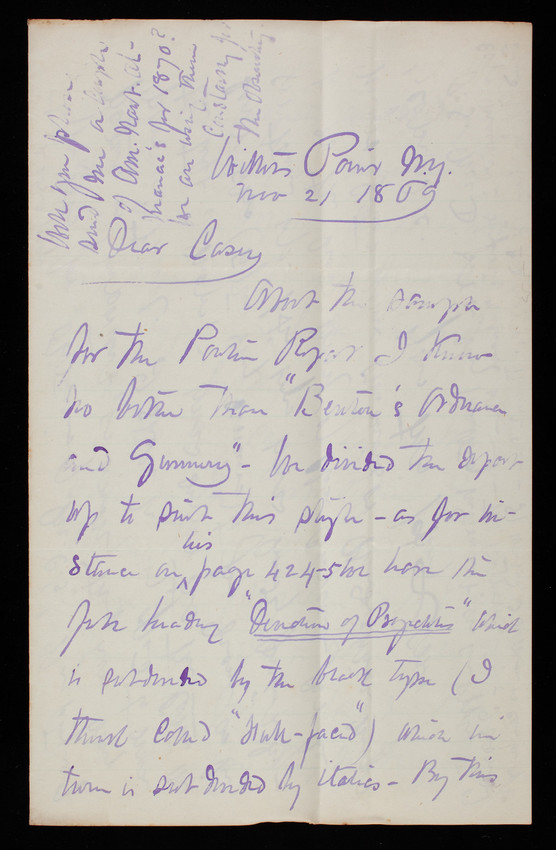 Will you please
send me a couple
of Am. Naut. Al-
manac's for 1870?
we are using them
constantly for
the Observatory.
Willets Point N.Y.
Nov 21 1869
Dear Casey
About the sample
for the Ponton Report I know
no better than "Benton's Ordnance
and Gunnery" - We divided the report
up to suit this style - as for in-
stance on his page 424-5 we have the
full heading "Deviation of Projectiles" which
is subdivided by the black type (I
think called "full-faced") which in
turn is subdivided by italics - By this